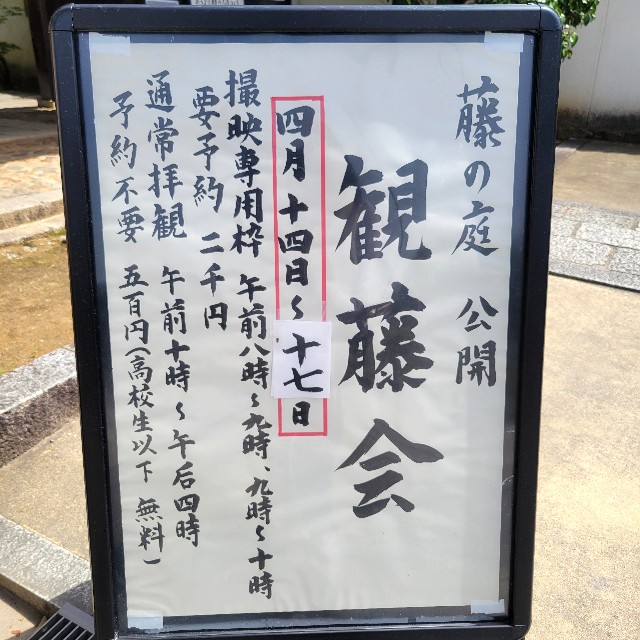 藤の庭 公開
観藤会
四月十四日～十七日
撮映専用枠 午前八時～九時、九時～十時
要予約 二千円
通常拝観 午前十時～午后四時
予約不要 五百円(高校生以下 無料)